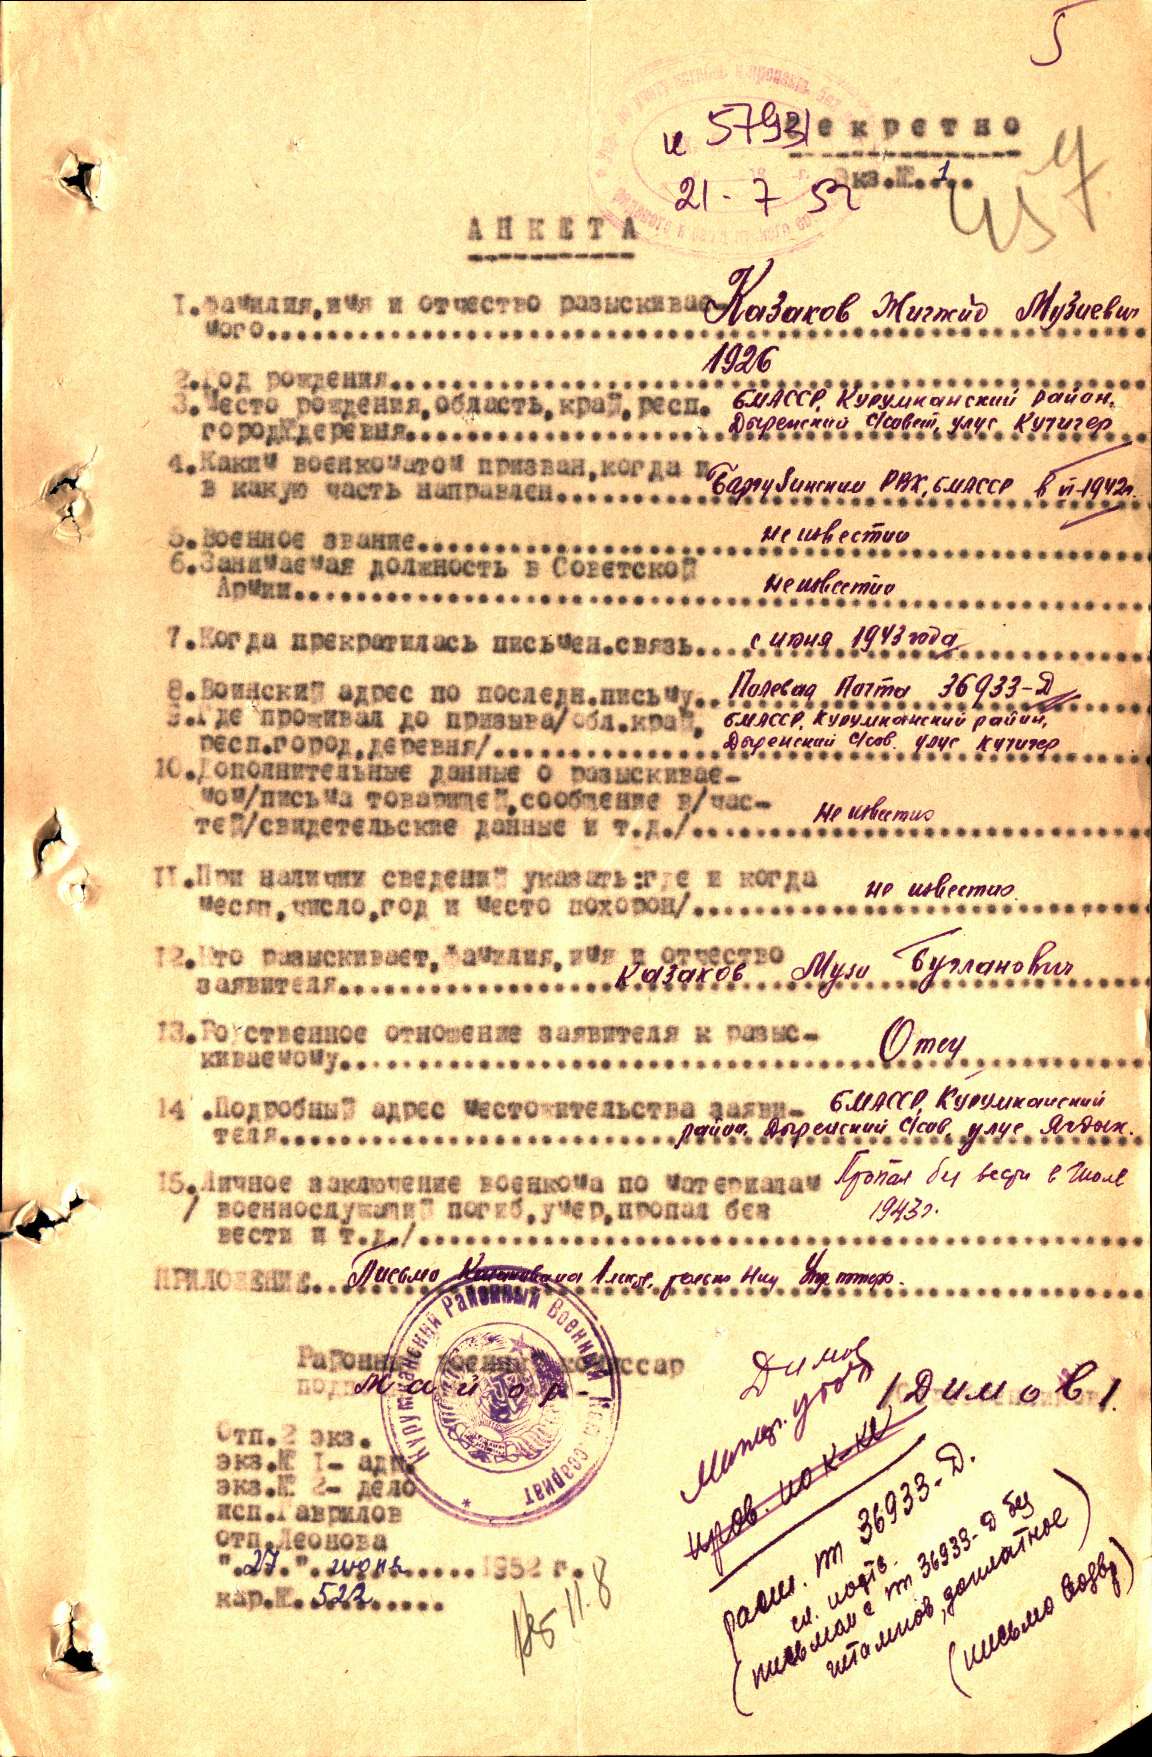 5
Секретно
и 57931
Экз.№..1..
21-7 52
457
АНКЕТА
1.Фамилия,имя и отчество разыскивае-
мого..... Казаков Жигжид Музиевич
2.Год рождения..... 1926
3.Место рождения,область,край,респ. БМАССР, Курумканский район,
город,деревня..... Дыренский с/совет, улус Кучигер
4.Каким военкоматом призван,когда и
в какую часть направлен..... Баргузинским РВК, БМАССР в 1942г.
5.Военное звание..... не известно
6.Занимаемая должность в Советской
Армии..... не известно
7.Когда прекратилась письмен.связь.... с июня 1943 года
8.Воинский адрес по последн.письму.. Полевая Почта 36933-Д
9.Где проживал до призыва/обл.край, БМАССР, Курумканский район,
респ.город,деревня/..... Дыренский с/сов. улус Кучигер
10.Дополнительные данные о разыскивае-
мом/письма товарищей,сообщение в/час-
тей/свидетельские данные и т.д./..... не известно
11.При наличии сведений указать:где и когда
месяц,число,год и место похорон/..... не известно
12.Кто разыскивает,фамилия,имя и отчество
заявителя..... Казаков Музи Бугланович
13.Родственное отношение заявителя к разыс-
киваемому..... Отец
14.Подробный адрес местожительства заяви- БМАССР, Курумканский
теля..... район, Дыренский с/сов, улус Ягдык.
15.Личное заключение военкома по материалам Пропал без вести в июле
/ военнослужащий погиб,умер,пропал без 1943г.
вести и т.д./.....
ПРИЛОЖЕНИЕ... Письмо
Курумканский Районный Военный Комиссариат
Районный военный комиссар
майор - /Димов/.
Димов
Отп.2 экз.
экз.№ 1- адр.
экз.№ 2- дело
исп.Гаврилов
отп.Леонова
".27.".июня.....1952 г.
кар.№.522.....
пров. по к-ке
расш. пп 36933-Д.
(письмо с пп 36933-Д без
штампов, доплатное)
(письмо возвр)